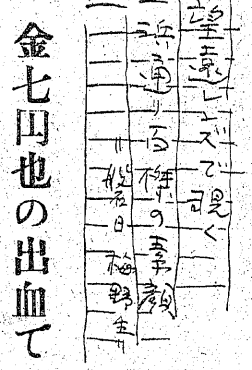 望遠レンズで覗く
浜通り百機の素顔
〃般若日 梅野生〃
金七円也の出血て